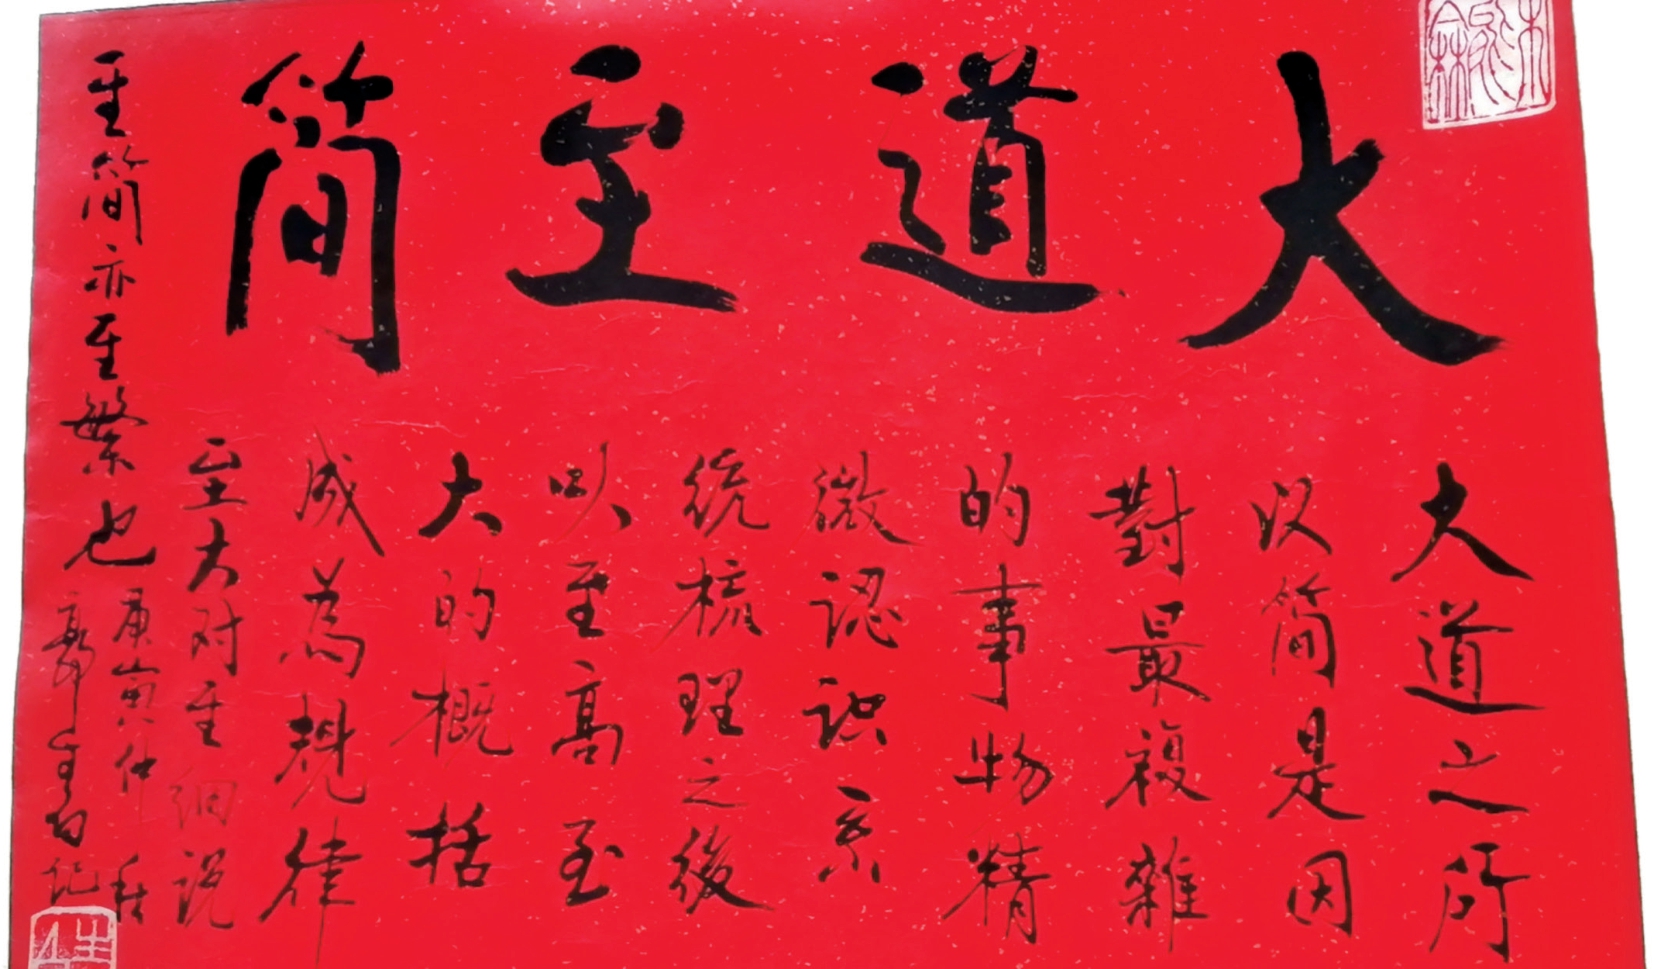 大道至简
大道之所
以简是因
對最複雜
的事物精
微認识系
统梳理之後
以至高至
大的概括
成為規律
至大对至细说
至简亦至繁也
庚寅仲秋
记